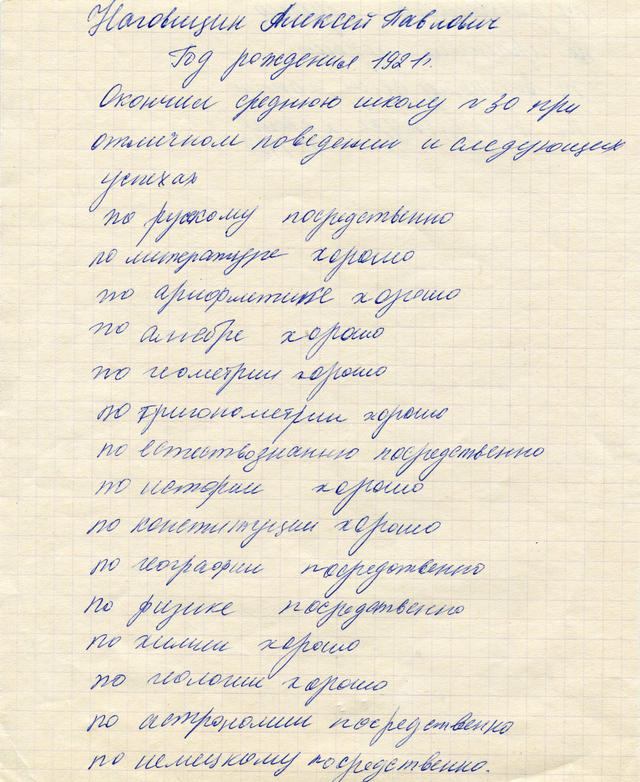 Наговицин Алексей Павлович
Год рождения 1921г.
Окончил среднюю школу №30 при
отличном поведении и следующих
успехах
по рускому посредственно
по литературе хорошо
по арифметике хорошо
по алгебре хорошо
по геометрии хорошо
по тригонометрии хорошо
по естествознанию посредственно
по истории хорошо
по конституции хорошо
по географии посредственно
по физике посредственно
по химии хорошо
по геологии хорошо
по астрономии посредственно
по немецкому посредственно.